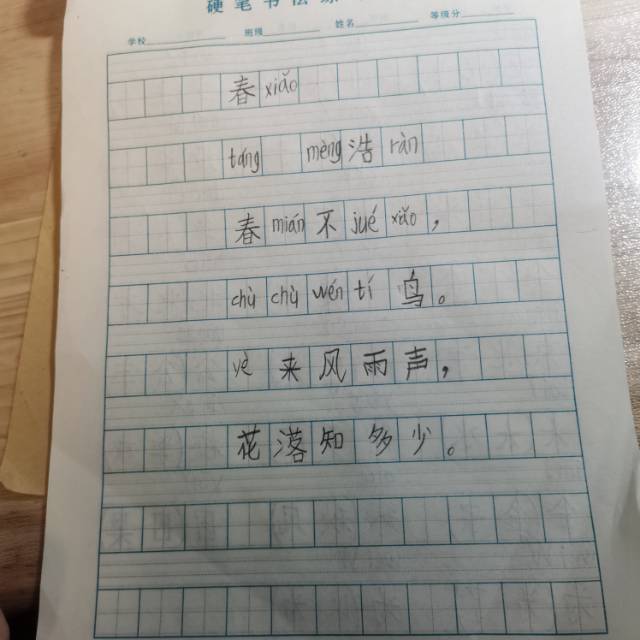 硬笔书法
学校 班级 姓名 等级分
春 xiǎo
táng mèng 浩 rán
春 mián 不 jué xiǎo，
chù chù wén tí 鸟。
yè 来 风 雨 声，
花 落 知 多 少。